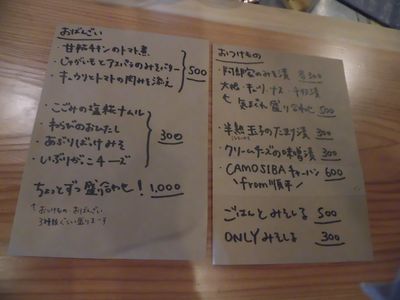 おばんざい
・甘糀チキンのトマト煮
・じゃがいもとアスパラのみそバター
・キュウリとトマトの肉みそ添え
500
・こごみの塩糀ナムル
・わらびのおひたし
・あぶりばっけみそ
・いぶりがっこチーズ
300
ちょっとずつ盛り合わせ! 1,000
↑ おつけもの おばんざい
3種類ぐらい盛ります
おつけもの
・阿部家のみそ漬 各300
大根・キュウリ・ナス
気まぐれ盛り合わせ 500
・半熟玉子のたまり漬 300
・クリームチーズの味噌漬 300
・CAMOSIBA 600
\from順平/
ごはんとみそしる 500
ONLYみそしる 300